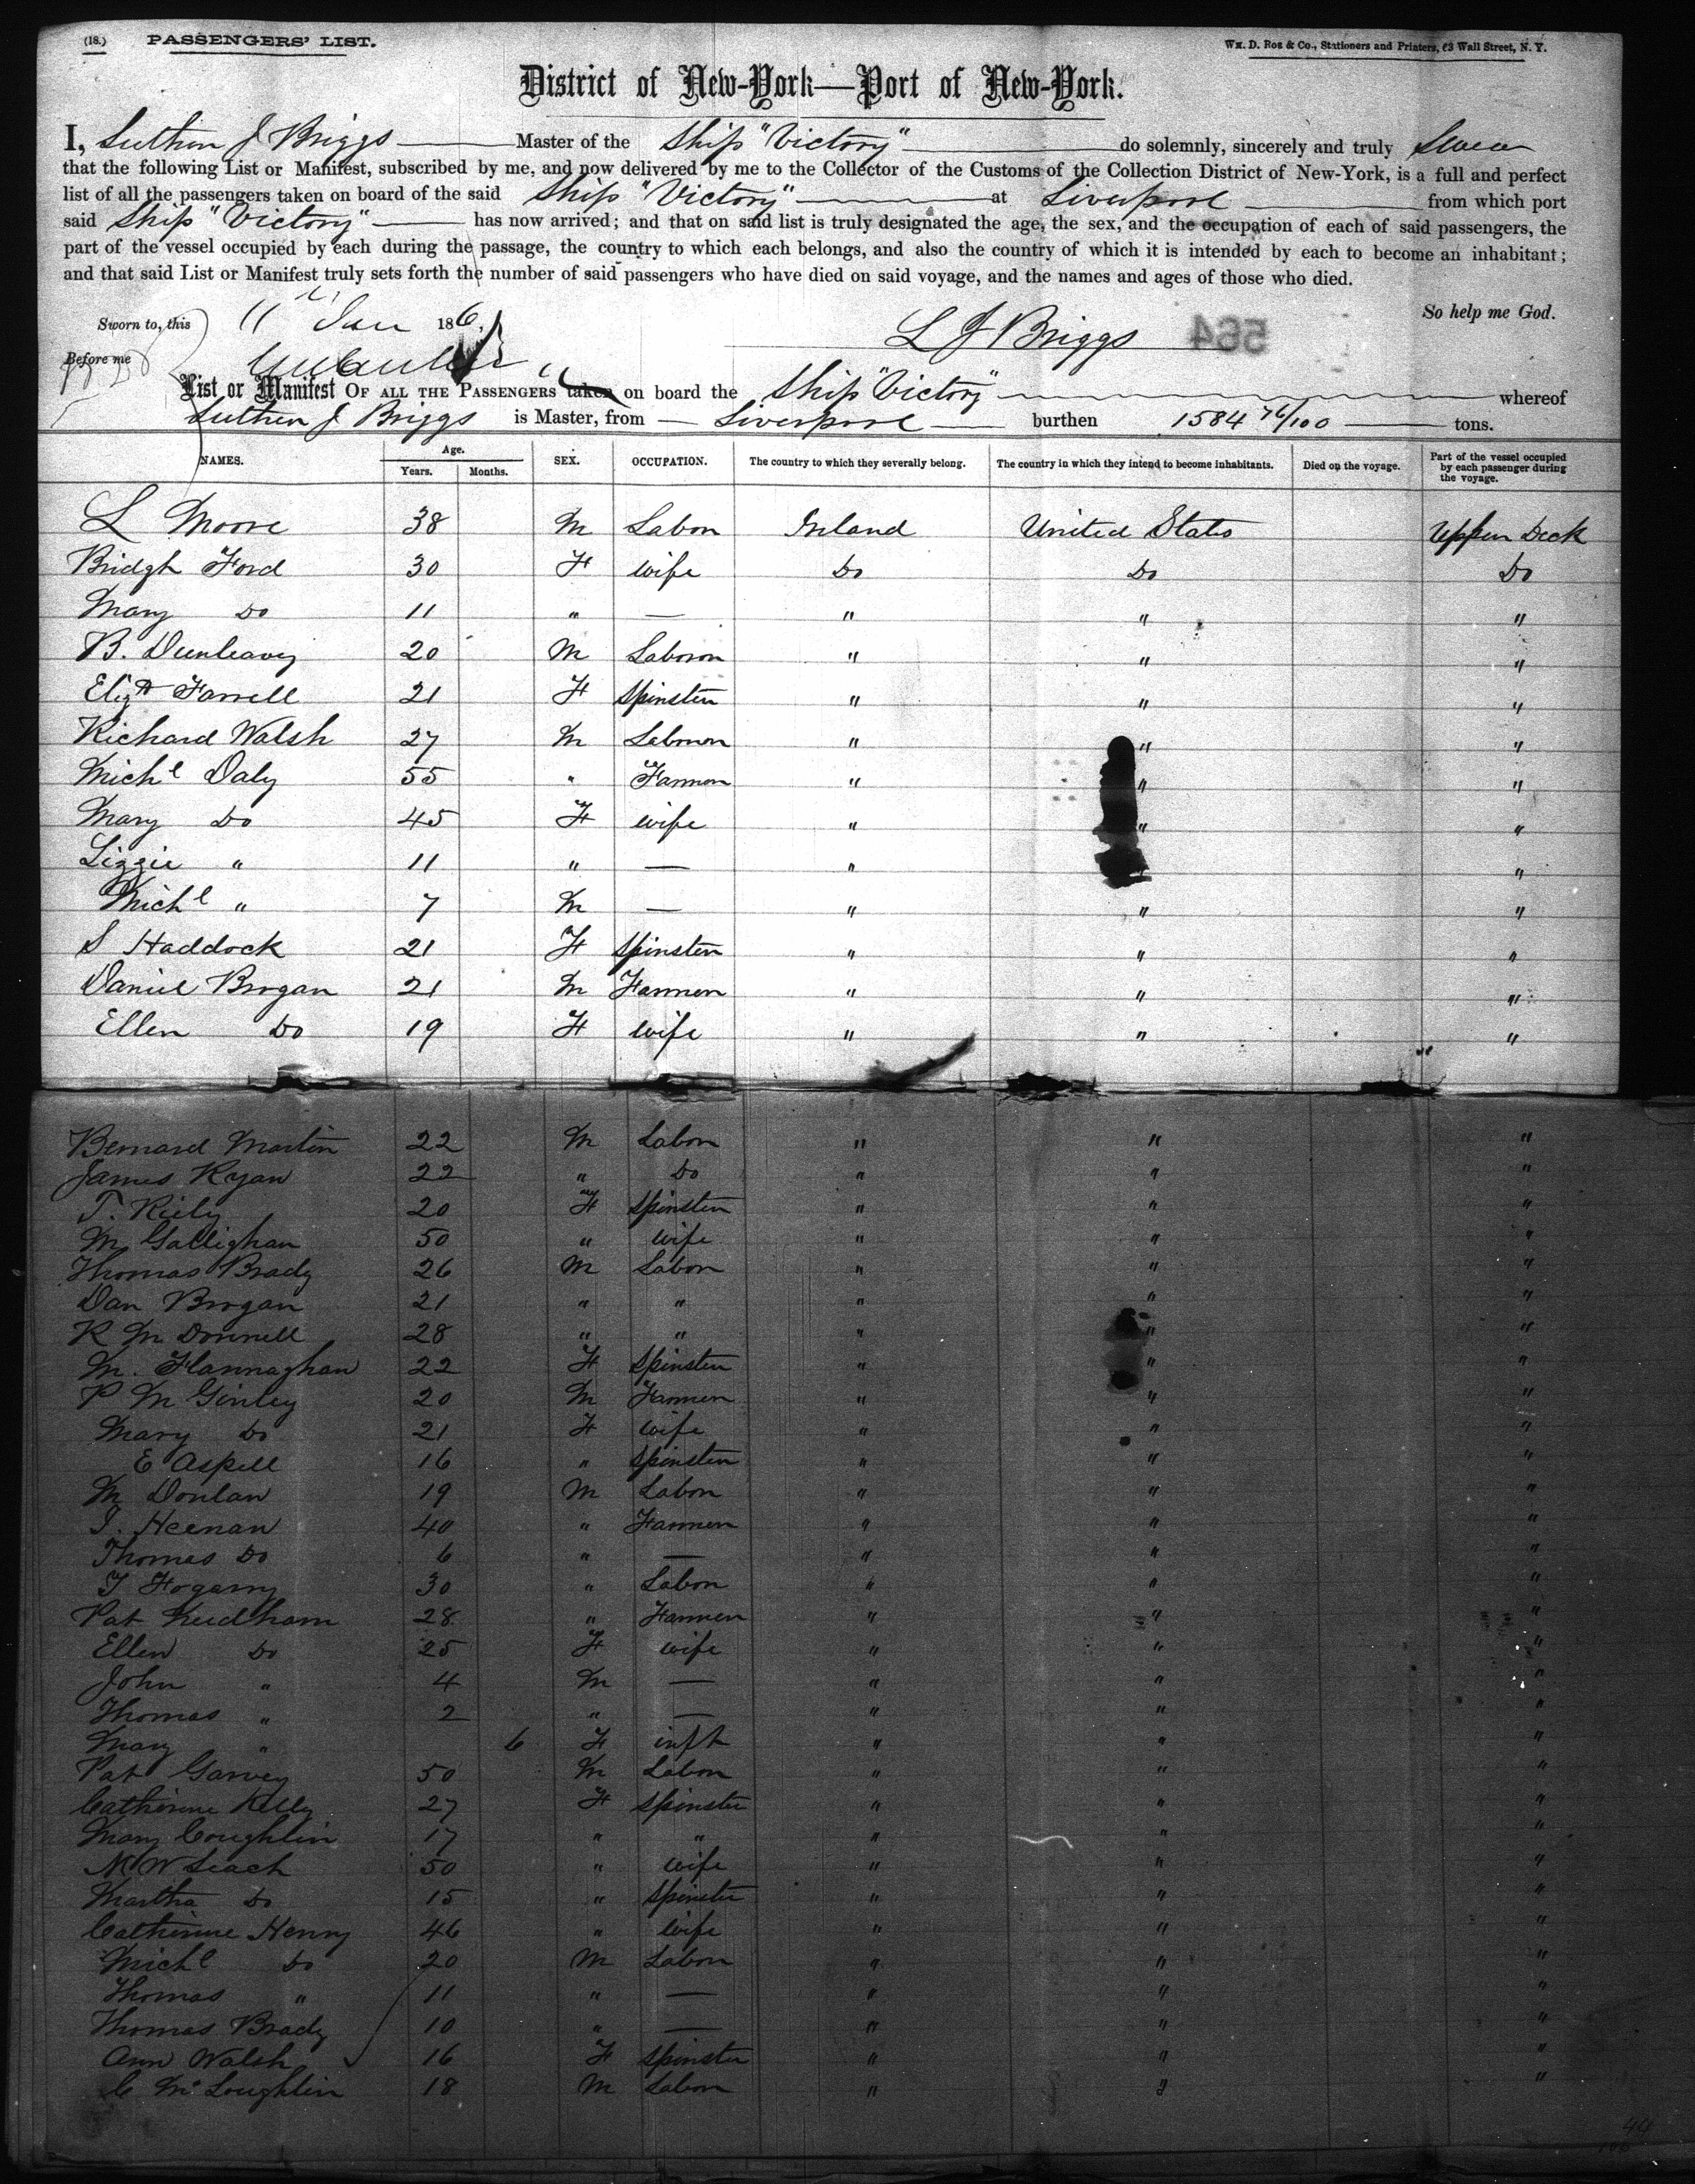 (18.) PASSENGERS' LIST. Wm. D. Roe & Co., Stationers and Printers, 63 Wall Street, N. Y.
District of New-York—Port of New-York.
I, Luther J Briggs Master of the Ship "Victory" do solemnly, sincerely and truly Swear
that the following List or Manifest, subscribed by me, and now delivered by me to the Collector of the Customs of the Collection District of New-York, is a full and perfect
list of all the passengers taken on board of the said Ship "Victory" at Liverpool from which port
said Ship "Victory" has now arrived; and that on said list is truly designated the age, the sex, and the occupation of each of said passengers, the
part of the vessel occupied by each during the passage, the country to which each belongs, and also the country of which it is intended by each to become an inhabitant;
and that said List or Manifest truly sets forth the number of said passengers who have died on said voyage, and the names and ages of those who died.
So help me God.
Sworn to, this 11 Jan 186
L J Briggs 564
Before me
List or Manifest OF ALL THE PASSENGERS taken on board the Ship "Victory" whereof
Luther J Briggs is Master, from Liverpool burthen 1584 76/100 tons.
NAMES. Age. Years. Months. SEX. OCCUPATION. The country to which they severally belong. The country in which they intend to become inhabitants. Died on the voyage. Part of the vessel occupied by each passenger during the voyage.
L Moore 38 M Labor Ireland United States Upper Deck
Bridgh Ford 30 F wife Do Do Do
Mary Do 11 " — " " "
B. Dunleavy 20 M Laboror " " "
Elizth Farrell 21 F Spinster " " "
Richard Walsh 27 M Laborer " " "
Michl Daly 55 " Farmer " " "
Mary Do 45 F wife " " "
Lizzie " 11 " — " " "
Michl " 7 M — " " "
S Haddock 21 F Spinster " " "
Daniel Brogan 21 M Farmer " " "
Ellen Do 19 F wife " " "
Bernard Martin 22 M Labor " " "
James Ryan 22 " Do " " "
T. Riely 20 F Spinster " " "
M Gallighan 50 " wife " " "
Thomas Brady 26 M Labor " " "
Dan Brogan 21 " " " " "
R Mc Donnell 28 " " " " "
M. Flannaghan 22 F Spinster " " "
P Mc Ginley 20 M Farmer " " "
Mary Do 21 F wife " " "
E Aspell 16 " Spinster " " "
M Donlan 19 M Labor " " "
J. Heenan 40 " Farmer " " "
Thomas Do 6 " — " " "
T Fogarry 30 " Labor " " "
Pat Keedham 28 " Farmer " " "
Ellen Do 25 F wife " " "
John " 4 M — " " "
Thomas " 2 " — " " "
Mary " 6 F inft " " "
Pat Garvey 50 M Labor " " "
Catherine Kelly 27 F Spinster " " "
Mary Coughlin 17 " " " " "
M W Leach 50 " wife " " "
Martha Do 15 " Spinster " " "
Catherine Henry 46 " wife " " "
Michl Do 20 M Labor " " "
Thomas " 11 " — " " "
Thomas Brady 10 " — " " "
Ann Walsh 16 F Spinster " " "
C Mc Loughlin 18 M Labor " " "